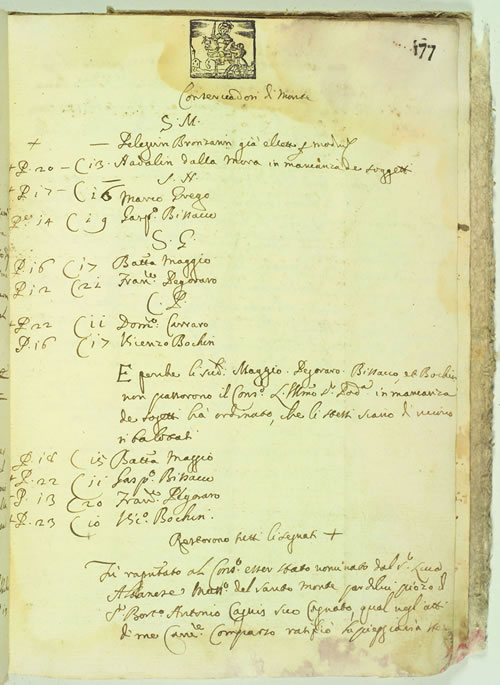 177
Conservadori di Monte
S. M.
+ — — Pelegrin Bronzann già eletto
+ P. 20 — C 13. Nadalin dalla Mora in mancanza de soggetti
S. N.
+ P. 17 — C 16 Marco Grego
P. 14 C 19 Gasp.o Bissacco
S. G.
P. 16 C 17 Batta Maggio
P. 12 C 21 Fran.co Pegoraro
C. P.
+ P. 22 C 11 Dom.o Carraro
P. 16 C 17 Vicenzo Bochin
E perche li sud.i Maggio. Pegoraro. Bissacco, et Bochin
non passorono il Cons.o in mancanza
de sogetti hà ordinato, che li stessi siano di nuovo
ribalotati
P. 18 C 15 Batta Maggio
+ P. 22 C 11 Gasp.o Bissacco
P. 13 C 20 Fran.co Pegoraro
+ P. 23 C 10 Vic.o Bochin.
Restorono eletti li segnati +
Fù al Cons.o esser stato nominato dal S.r Luca
Albanese Mass.o del Santo Monte per
S.r Bort.o Antonio suo Cognato, qual negli atti
di me Canc.e Comparso ratificò la pieggiaria